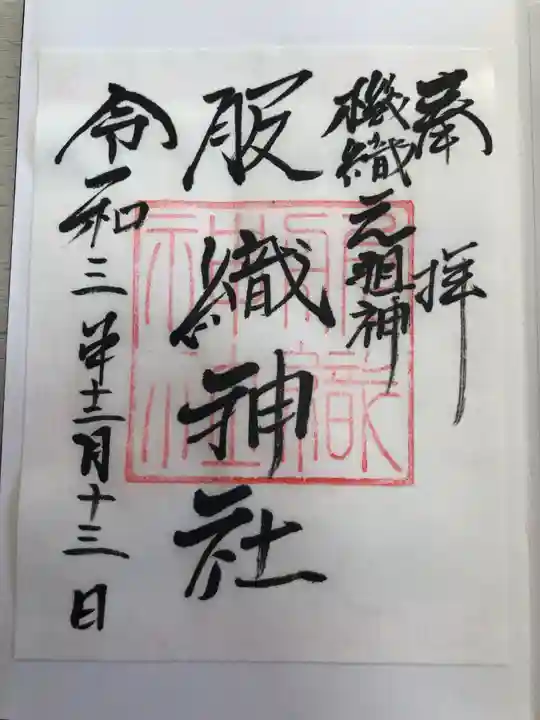 奉拝
機織元祖神
服織神社
令和三年十二月十三日
服織
神社